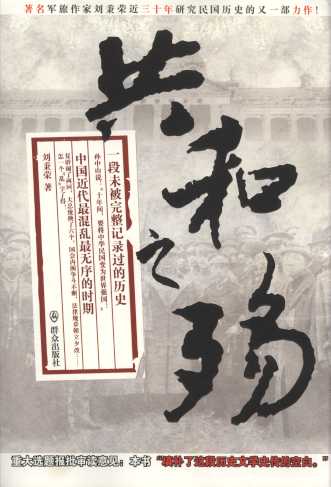 著名军旅作家刘秉荣近三十年研究民国历史的又一部力作！
共和之殇
一段未被完整记录过的历史
孙中山说：“十年间，要将中华民国变为世界强国。”
中国近代最混乱最无序的时期
怎一个“乱”字了得
刘秉荣 著
群众出版社
重大选题报批审读意见：本书“填补了这段历史文学史传的空白。”